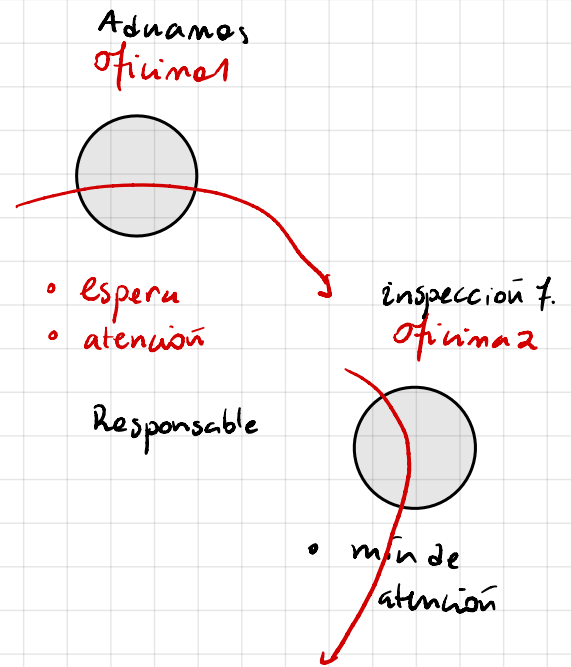 Aduanas
Oficina1
• espera
• atención
Responsable
inspección f.
Oficina 2
• mín de
atención